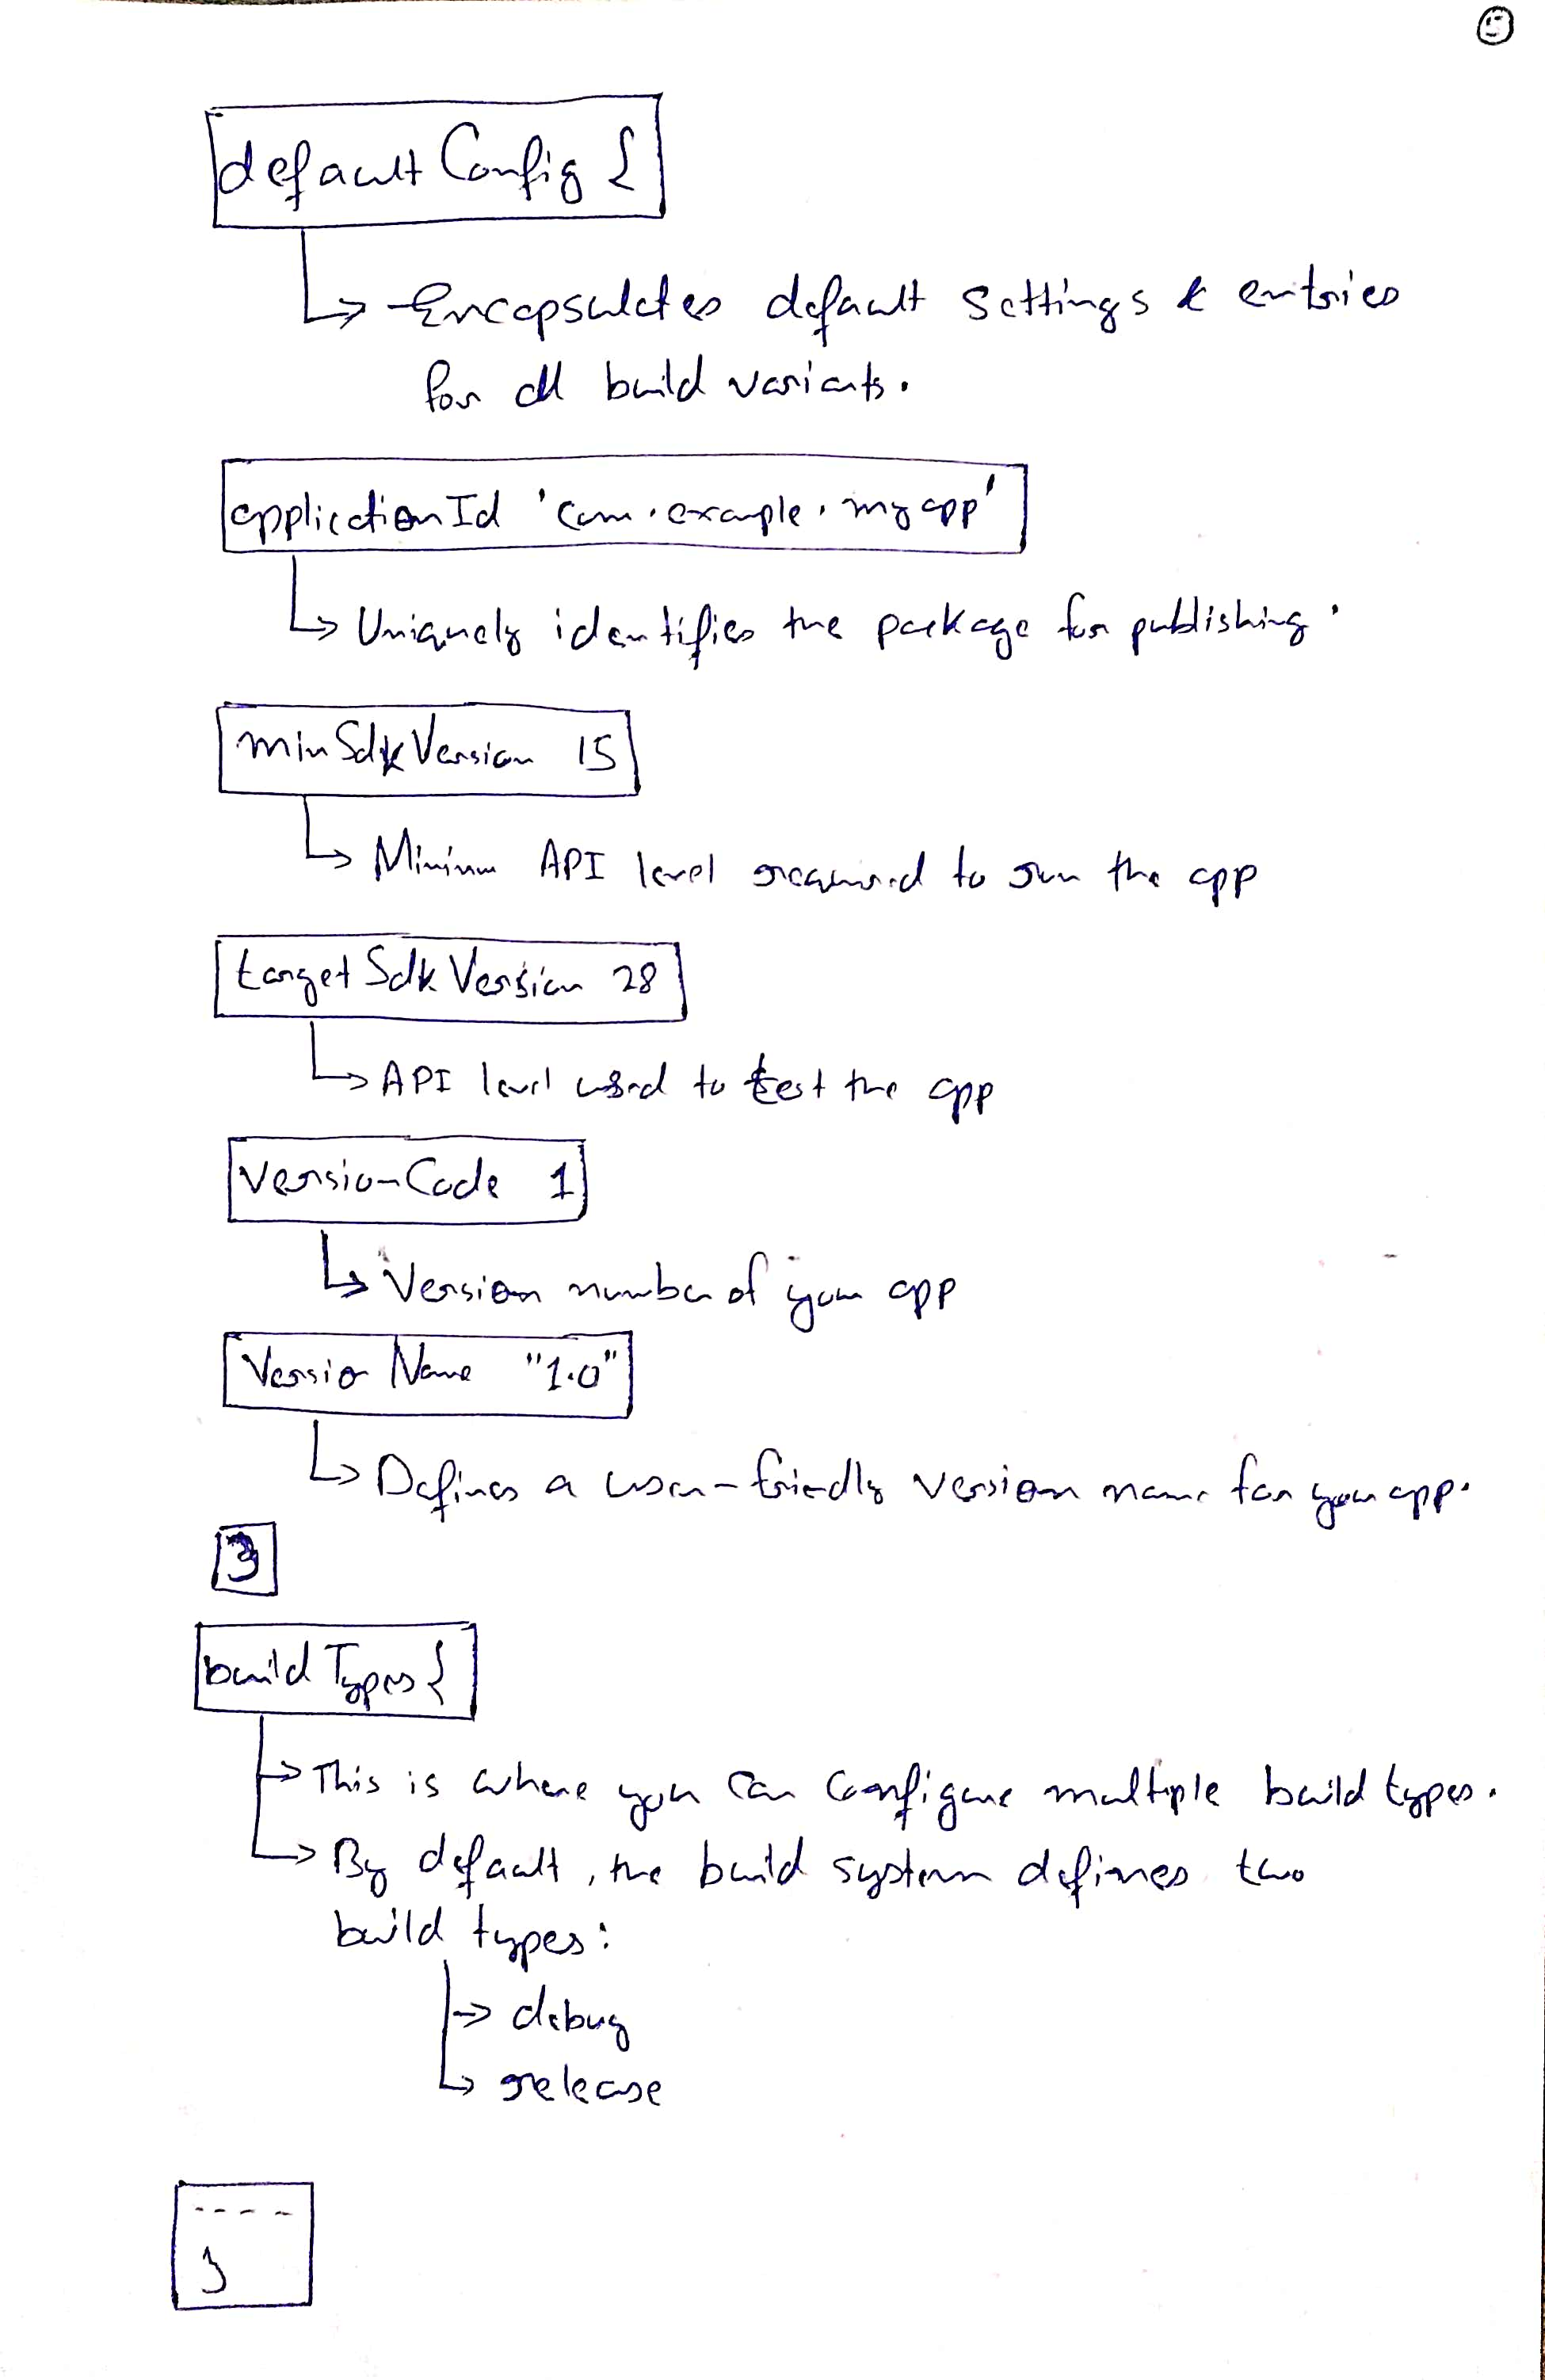 defaultConfig {
Encapsulates default settings & entries
for all build variants.
applicationId 'com.example.myapp'
Uniquely identifies the package for publishing.
minSdkVersion 15
Minimum API level required to run the app
targetSdkVersion 28
API level used to test the app
versionCode 1
Version number of your app
versionName "1.0"
Defines a user-friendly version name for your app.
}
buildTypes {
This is where you can configure multiple build types.
By default, the build system defines two
build types:
debug
release
----
}